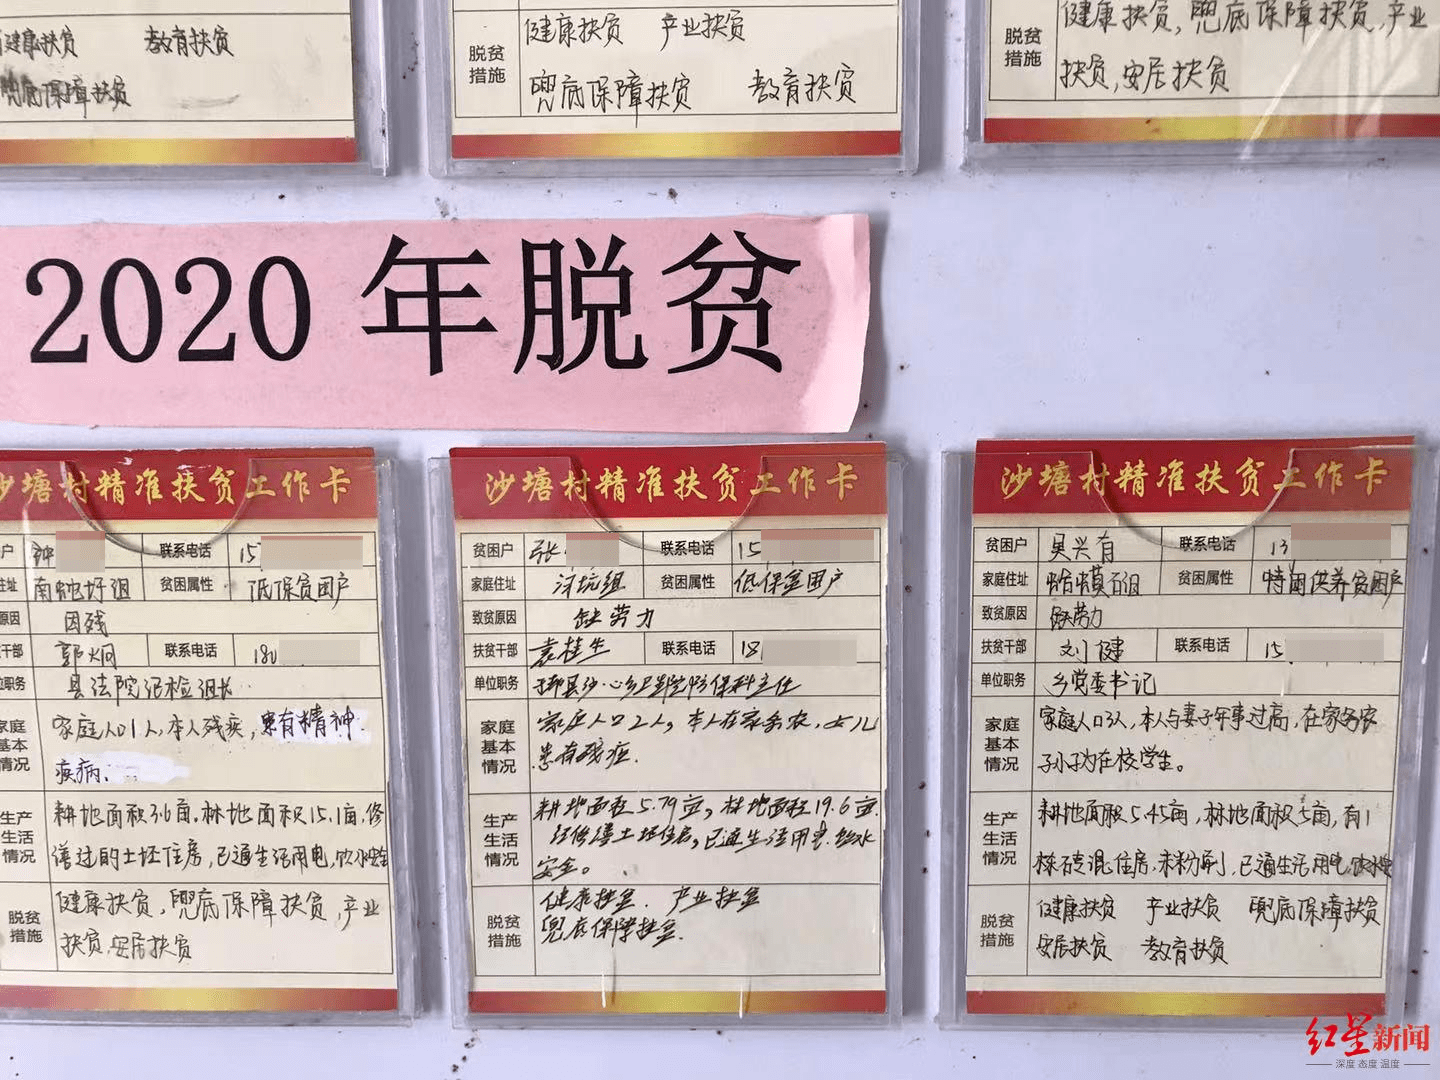 健康扶贫 教育扶贫
兜底保障扶贫
脱贫措施
健康扶贫 产业扶贫
兜底保障扶贫 教育扶贫
脱贫措施
健康扶贫,兜底保障扶贫,产业
扶贫,安居扶贫
2020年脱贫
沙塘村精准扶贫工作卡
户 钟 联系电话 15
住址 南蛇圩组 贫困属性 低保贫困户
原因 因残
干部 郭炯 联系电话 180
职务 县法院纪检组长
家庭基本情况
家庭人口1人,本人残疾,患有精神
疾病.
生产生活情况
耕地面积3.6亩.林地面积15.1亩.修
缮过的土坯住房,已通生活用电,饮水安全
脱贫措施
健康扶贫,兜底保障扶贫,产业
扶贫,安居扶贫
沙塘村精准扶贫工作卡
贫困户 张 联系电话 15
家庭住址 组 贫困属性 低保贫困户
致贫原因 缺劳力
扶贫干部 袁桂生 联系电话 18
单位职务 县沙心乡卫生院防保科主任
家庭基本情况
家庭人口2人,本人在家务农,女儿
患有残症.
生产生活情况
耕地面积5.79亩,林地面积19.6亩.
经修缮土坯住房,已通生活用电.饮水
安全。
脱贫措施
健康扶贫. 产业扶贫
兜底保障扶贫.
沙塘村精准扶贫工作卡
贫困户 吴兴有 联系电话 13
家庭住址 组 贫困属性 特困供养贫困户
致贫原因 缺劳力
扶贫干部 刘健 联系电话 15
单位职务 乡党委书记
家庭基本情况
家庭人口3人,本人与妻子年事过高,在家务农
孙子为在校学生。
生产生活情况
耕地面积5.45亩,林地面积5亩,有1
栋砖混住房,未粉刷,已通生活用电,饮水安全
脱贫措施
健康扶贫 产业扶贫 兜底保障扶贫
安居扶贫 教育扶贫
红星新闻
深度 态度 温度